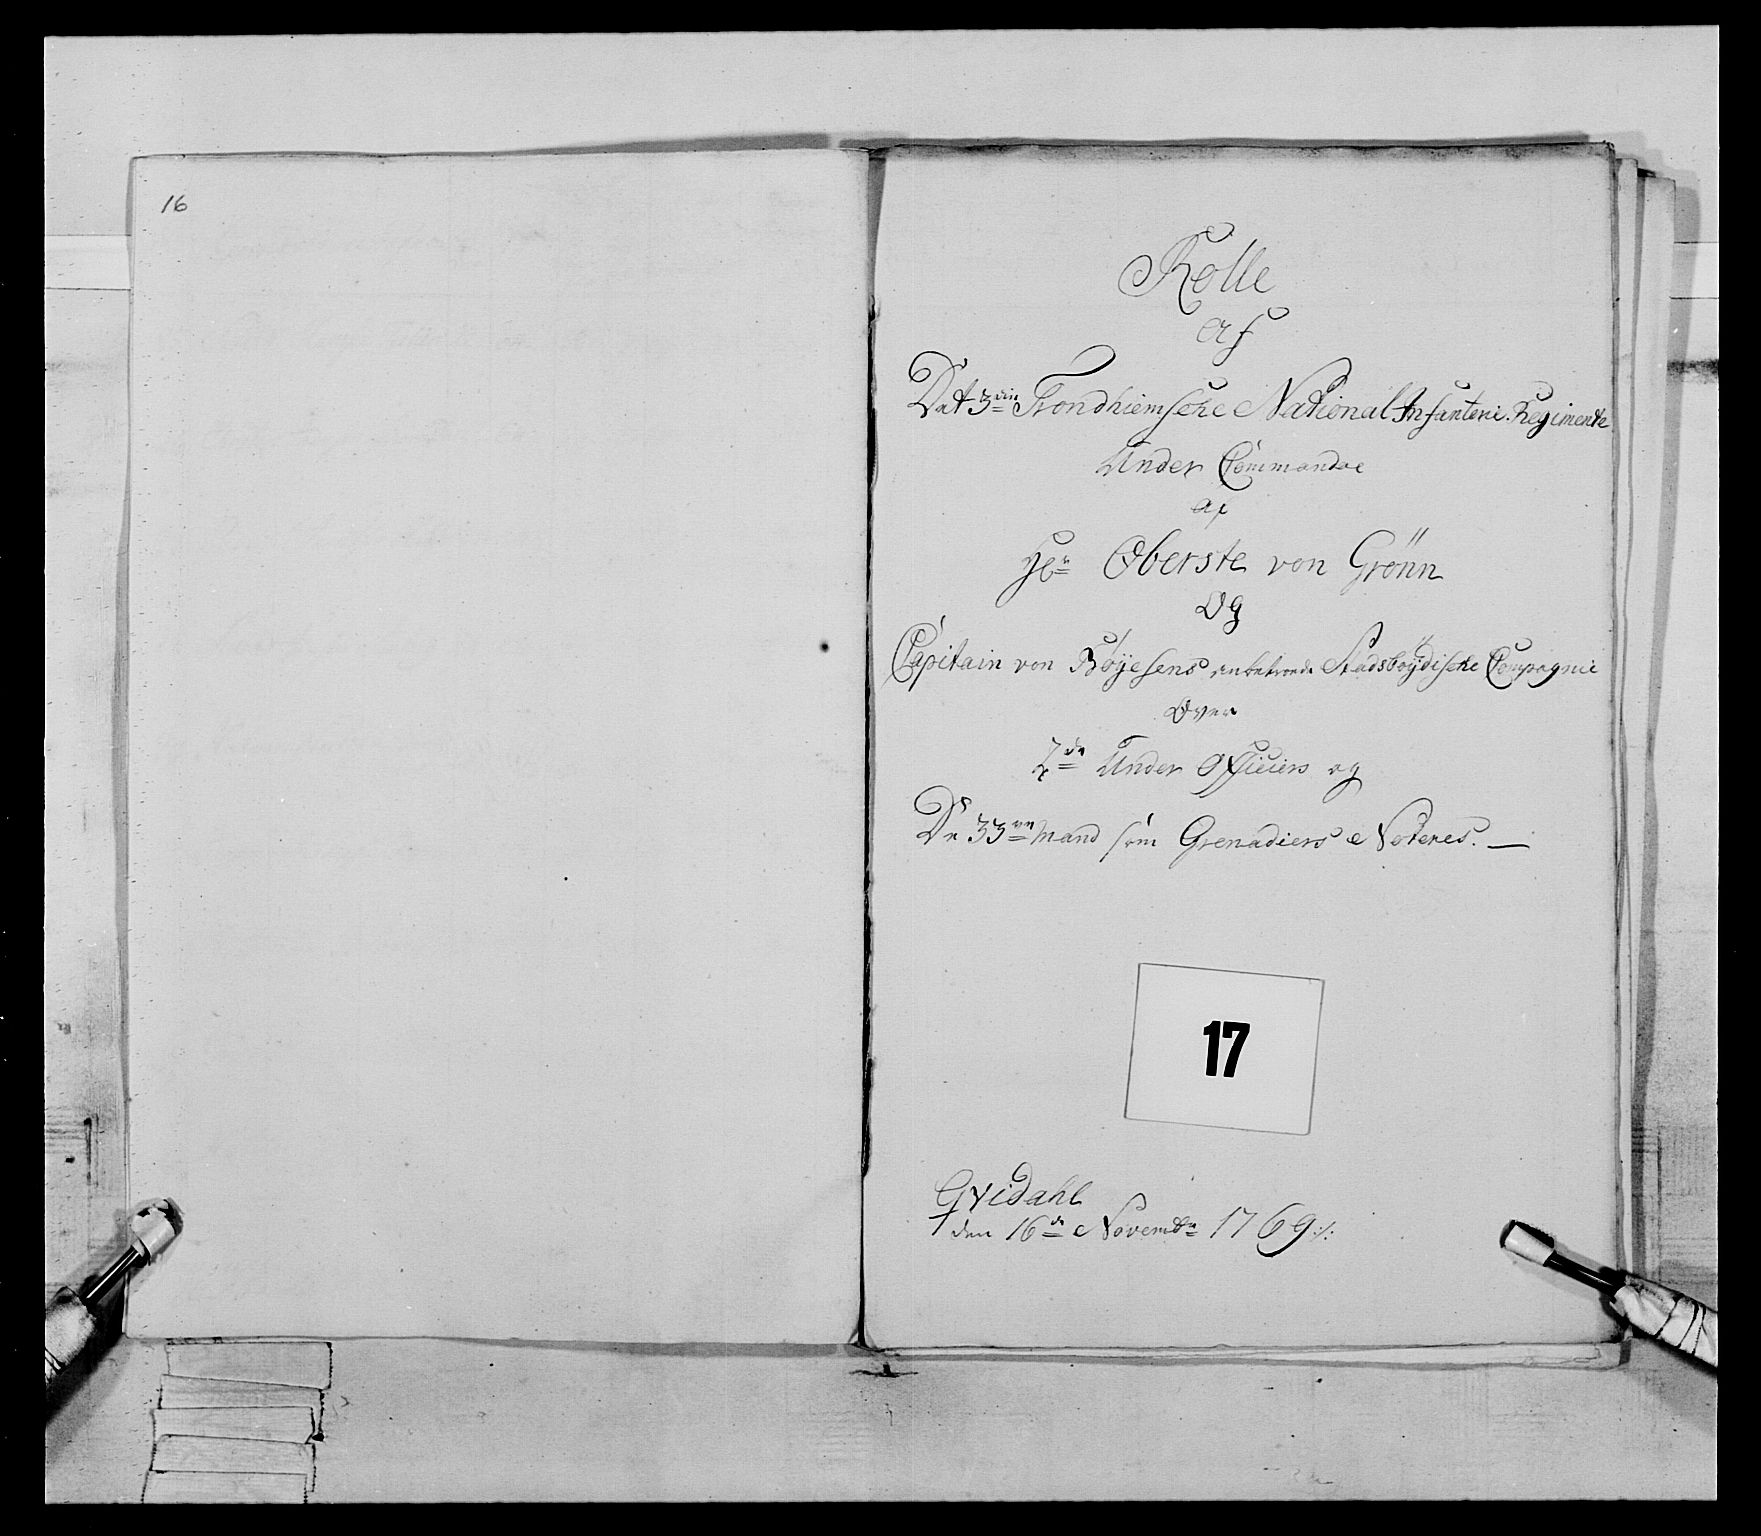 16
Rolle
Af
Det 3die Trondhiemsche National Infanterie Regimente
Under Commandoe
af
Hr Oberste von Grönn
Og
Capitain von Böyesens anbetroede Stadsböydische Compagnie
Over
2de Under Officiers og
De 33ve Mand som Grenadiers Noteres. —
17
Qvidahl
den 16de Novembr 1769 ./.